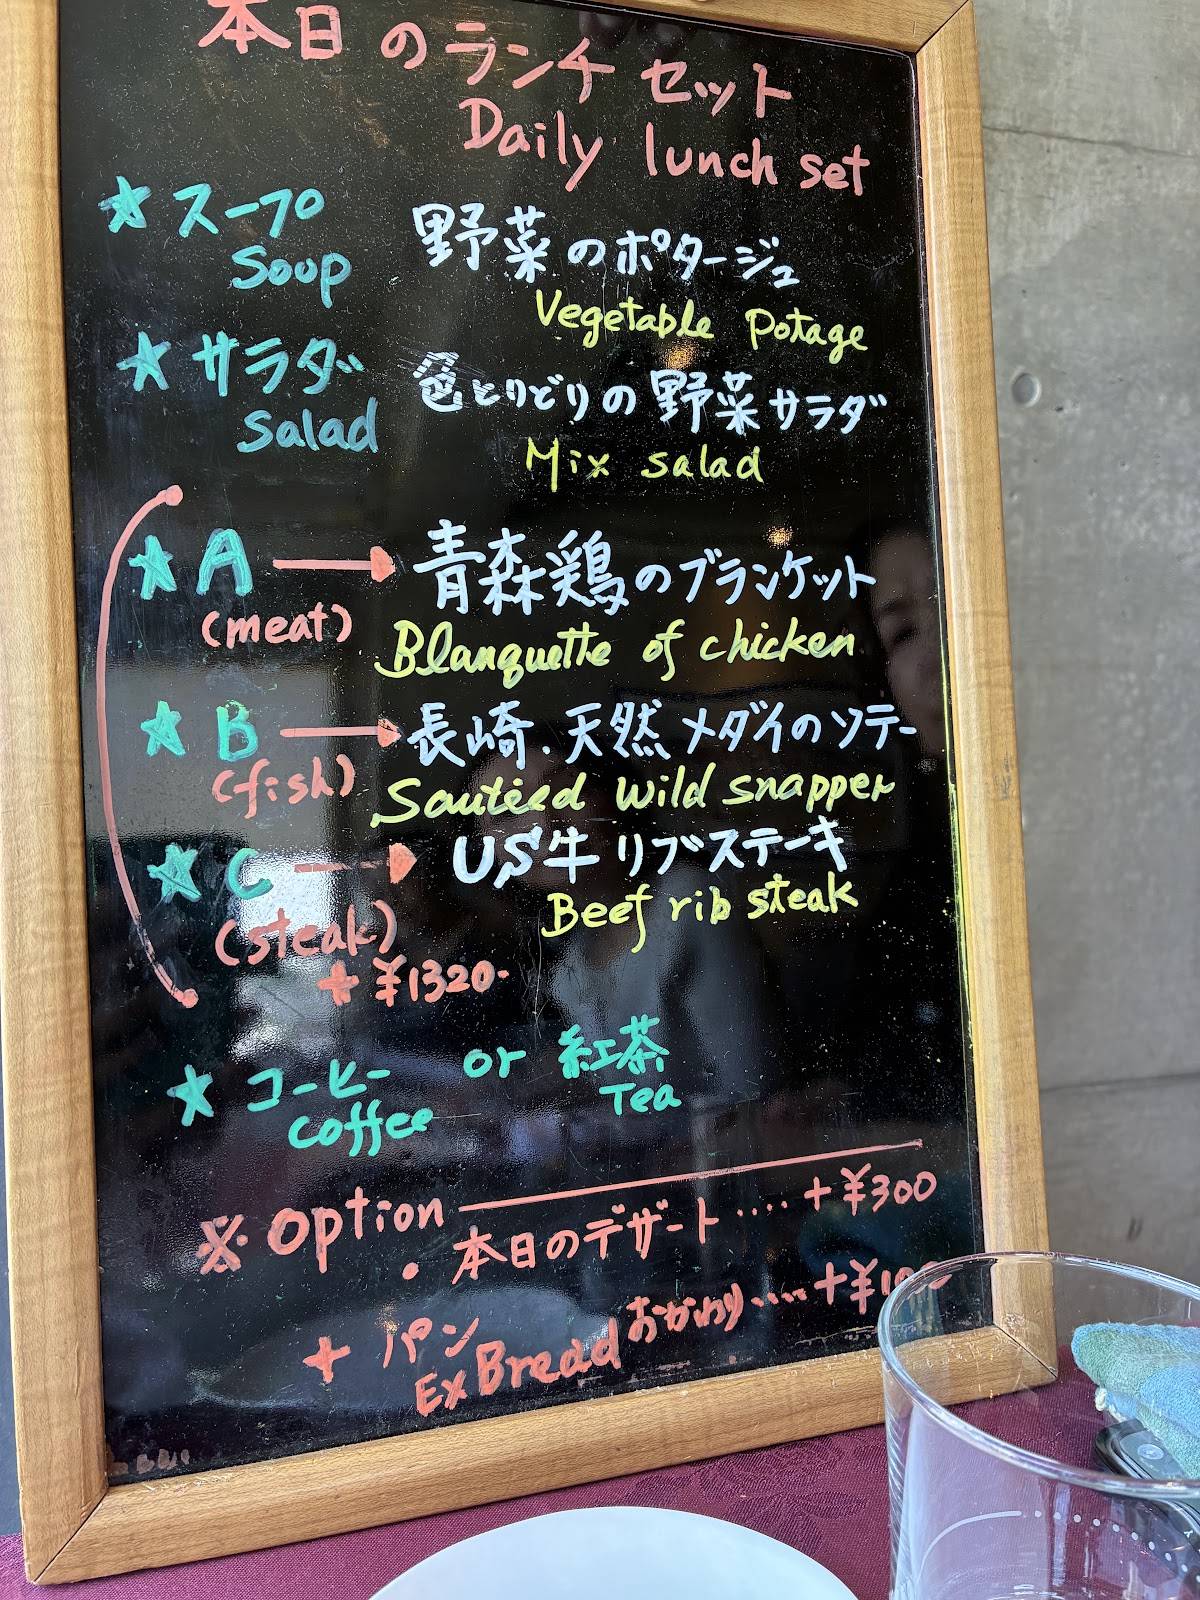 本日のランチセット
Daily lunch set
★スープ 野菜のポタージュ
Soup Vegetable potage
★サラダ 色とりどりの野菜サラダ
Salad Mix salad
★A → 青森鶏のブランケット
(meat) Blanquette of chicken
★B → 長崎.天然メダイのソテー
(fish) Sautéed wild snapper
★C → US牛リブステーキ
(steak) Beef rib steak
+¥1320-
★コーヒー or 紅茶
Coffee Tea
※option
・本日のデザート....+¥300
+パン おかわり....
Ex Bread